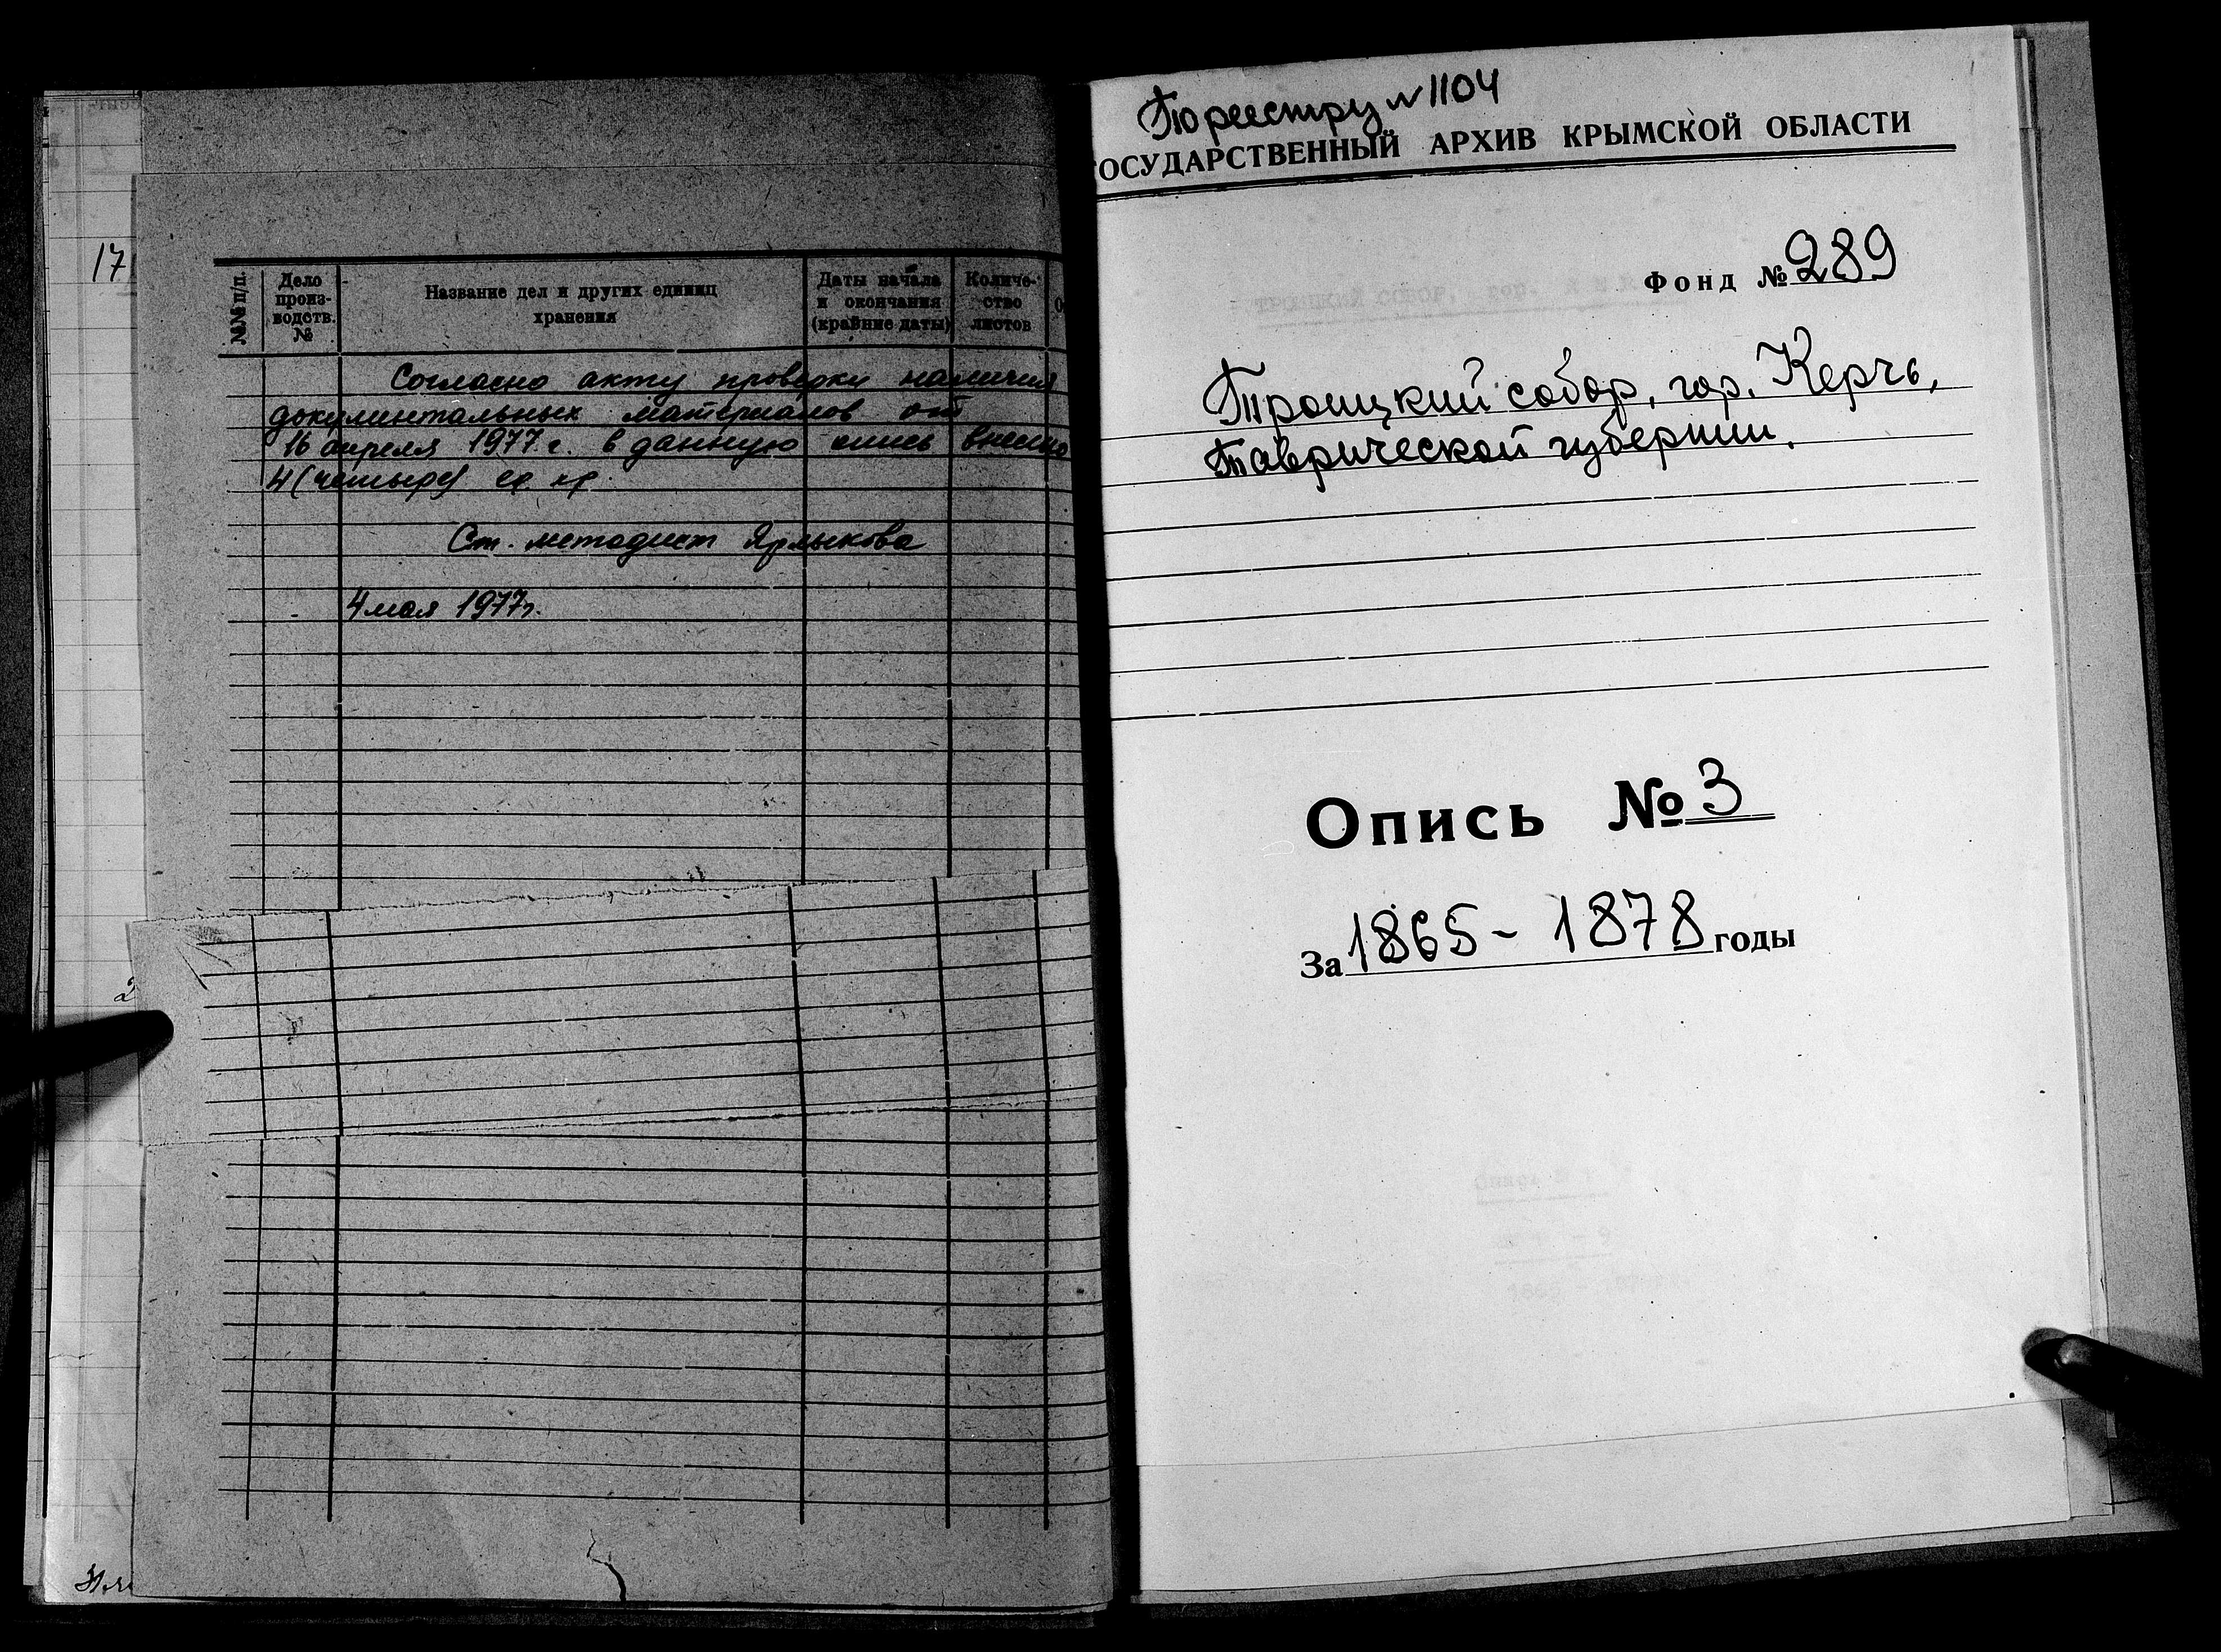 17
№№ п/п.
Дело
произ-
водств.
№
Название дел и других единиц
хранения
Даты начала
и окончания
(крайние даты)
Количе-
ство
листов
Согласно акту проверки наличия
документальных материалов от
16 апреля 1977 г. в данную опись внесено
4 (четыре) ед. хр.
Ст. методист Ярлыкова
4 мая 1977г.
По реестру № 1104
ОСУДАРСТВЕННЫЙ АРХИВ КРЫМСКОЙ ОБЛАСТИ
Фонд № 289
Троицкий собор, гор. Керчь,
Таврической губернии.
Опись № 3
За 1865 - 1878 годы